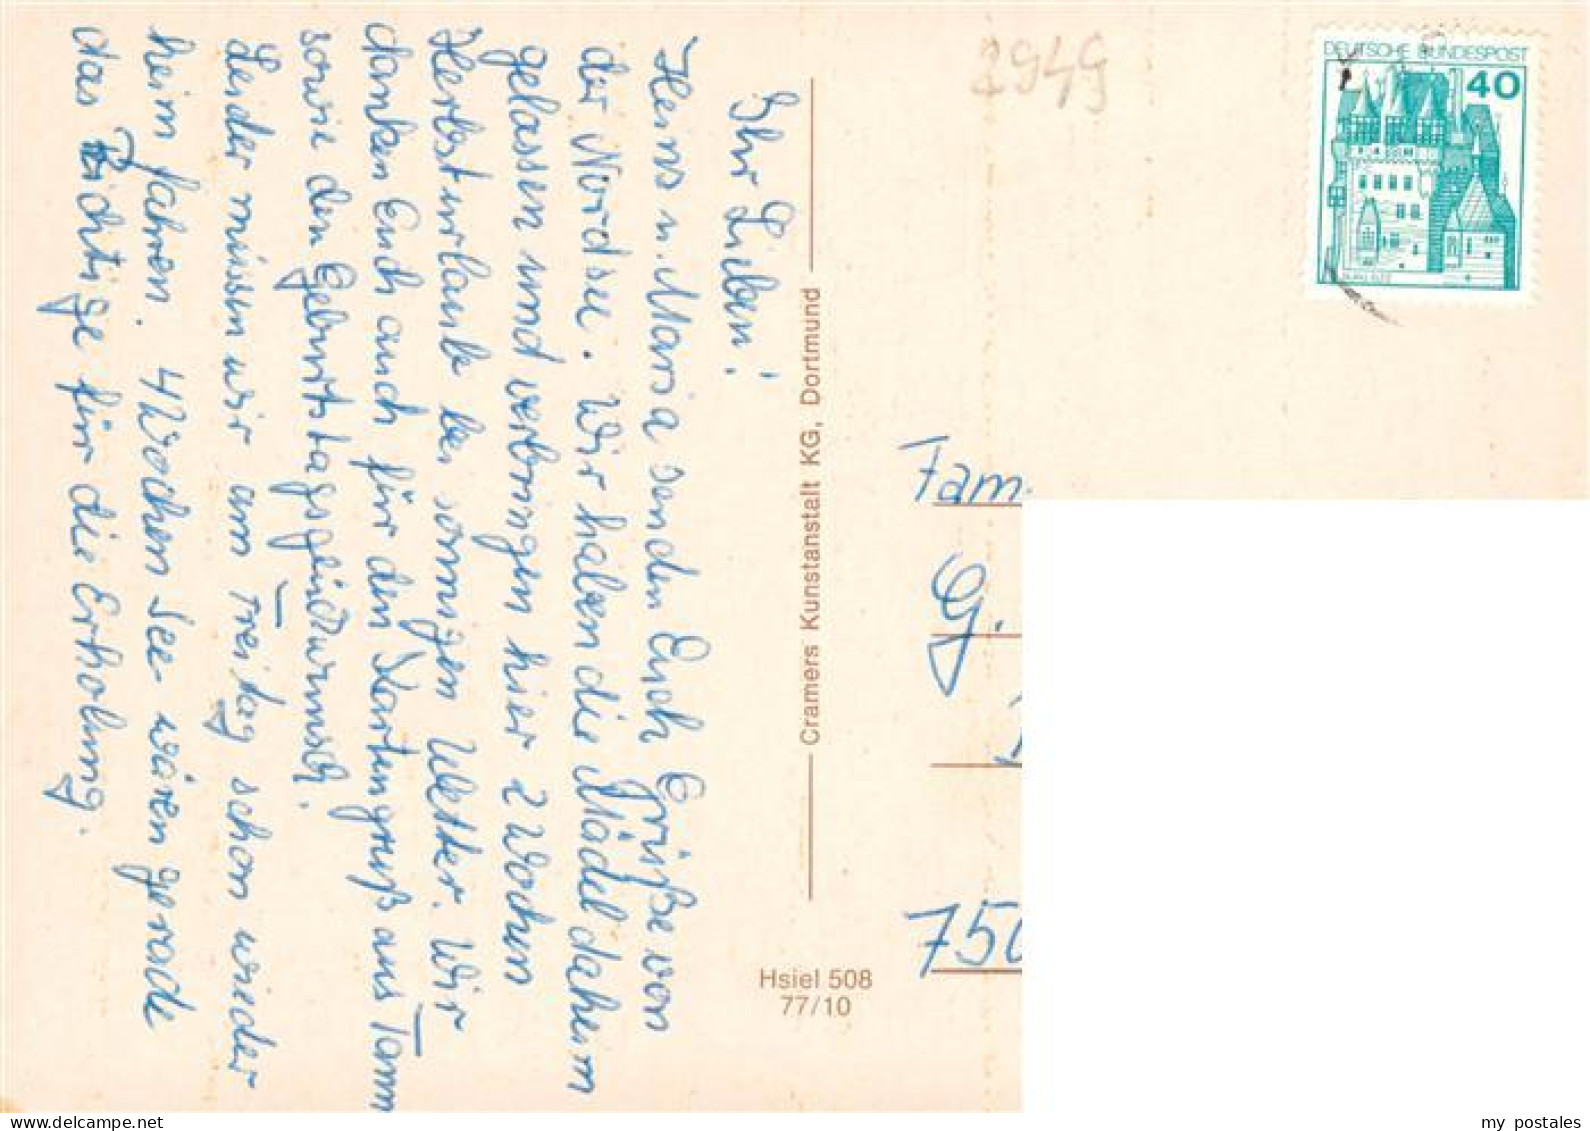 Ihr Lieben!
Heins u. Maria senden Euch Grüße von
der Nordsee. Wir haben die Mädel daheim
gelassen und verbringen hier 2 Wochen
Herbsturlaub bei sonnigen Wetter. Wir
danken Euch auch für den Kartengruß aus Tamm
sowie den Geburtstagsglückwunsch.
Leider müssen wir am Freitag schon wieder
heim fahren. 4 Wochen See wären gerade
das Richtige für die Erholung.
Cramers Kunstanstalt KG, Dortmund
Hsiel 508
77/10
2949
DEUTSCHE BUNDESPOST
40
Fam.
G.
750
my postales